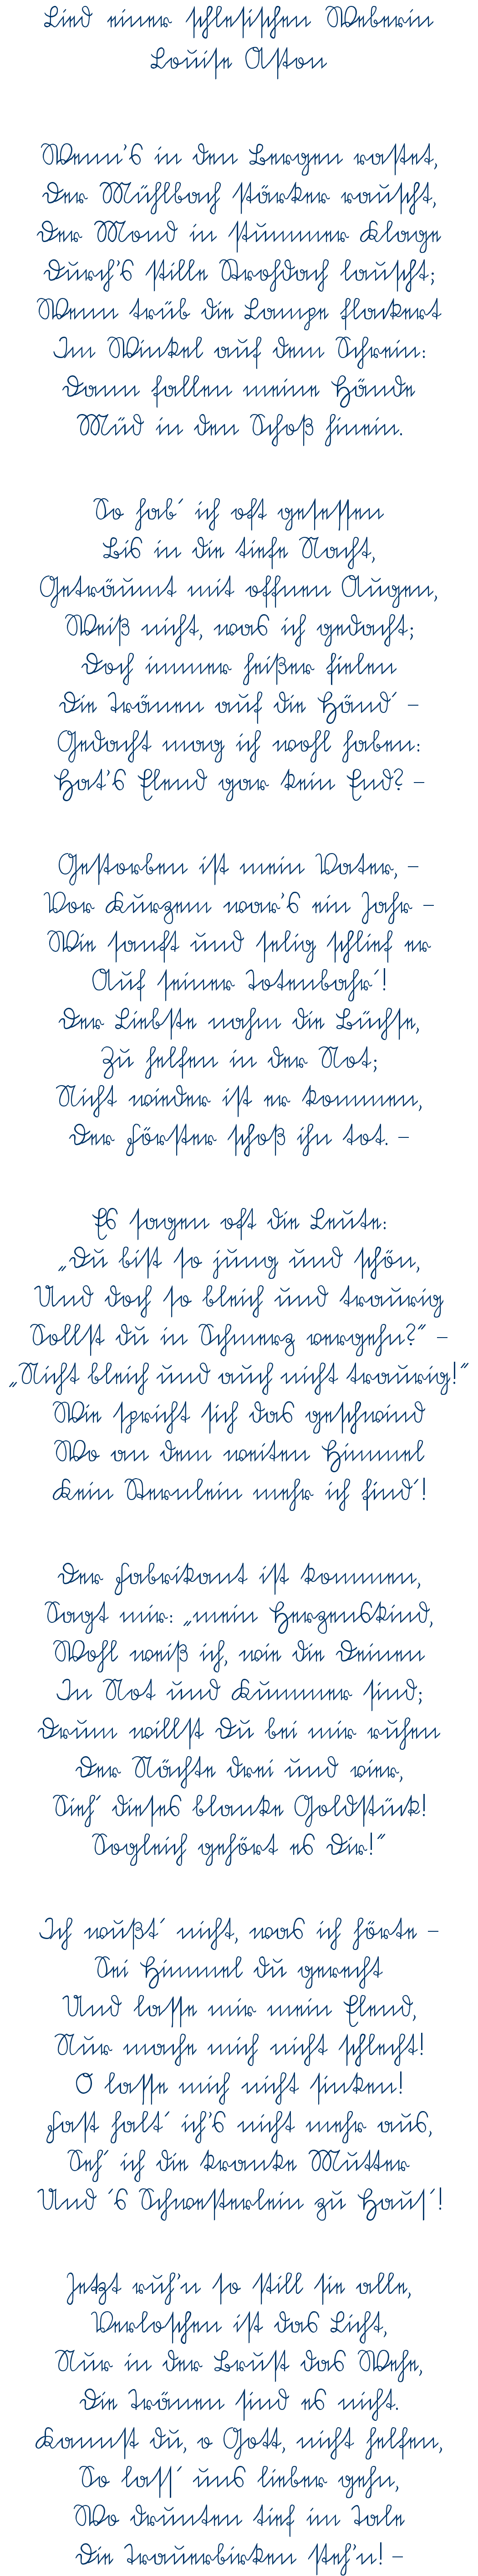 Lied einer schlesischen Weberin
Louise Aston

Wenn's in den Bergen rastet,
Der Mühlbach stärker rauscht,
Der Mond in stummer Klage
Durch's stille Strohdach lauscht;
Wenn trüb die Lampe flackert
Im Winkel auf dem Schrein:
Dann fallen meine Hände
Müd in den Schoß hinein.

So hab´ ich oft gesessen
Bis in die tiefe Nacht,
Geträumt mit offnen Augen,
Weiß nicht, was ich gedacht;
Doch immer heißer fielen
Die Tränen auf die Händ´ –
Gedacht mag ich wohl haben:
Hat's Elend gar kein End? –

Gestorben ist mein Vater, –
Vor Kurzem war's ein Jahr –
Wie sanft und selig schlief er
Auf seiner Totenbahr´!
Der Liebste nahm die Büchse,
Zu helfen in der Not;
Nicht wieder ist er kommen,
Der Förster schoß ihn tot. –

Es sagen oft die Leute:
„Du bist so jung und schön,
Und doch so bleich und traurig
Sollst du in Schmerz vergehn?“ –
„Nicht bleich und auch nicht traurig!“
Wie spricht sich das geschwind
Wo an dem weiten Himmel
Kein Sternlein mehr ich find´!

Der Fabrikant ist kommen,
Sagt mir: „mein Herzenskind,
Wohl weiß ich, wie die Deinen
In Not und Kummer sind;
Drum willst Du bei mir ruhen
Der Nächte drei und vier,
Sieh´ dieses blanke Goldstück!
Sogleich gehört es Dir!“

Ich wußt´ nicht, was ich hörte –
Sei Himmel du gerecht
Und lasse mir mein Elend,
Nur mache mich nicht schlecht!
O lasse mich nicht sinken!
Fast halt´ ich's nicht mehr aus,
Seh´ ich die kranke Mutter
Und ´s Schwesterlein zu Haus´!

Jetzt ruh'n so still sie alle,
Verloschen ist das Licht,
Nur in der Brust das Wehe,
Die Tränen sind es nicht.
Kannst du, o Gott, nicht helfen,
So lass´ uns lieber gehn,
Wo drunten tief im Tale
Die Trauerbirken steh'n! –